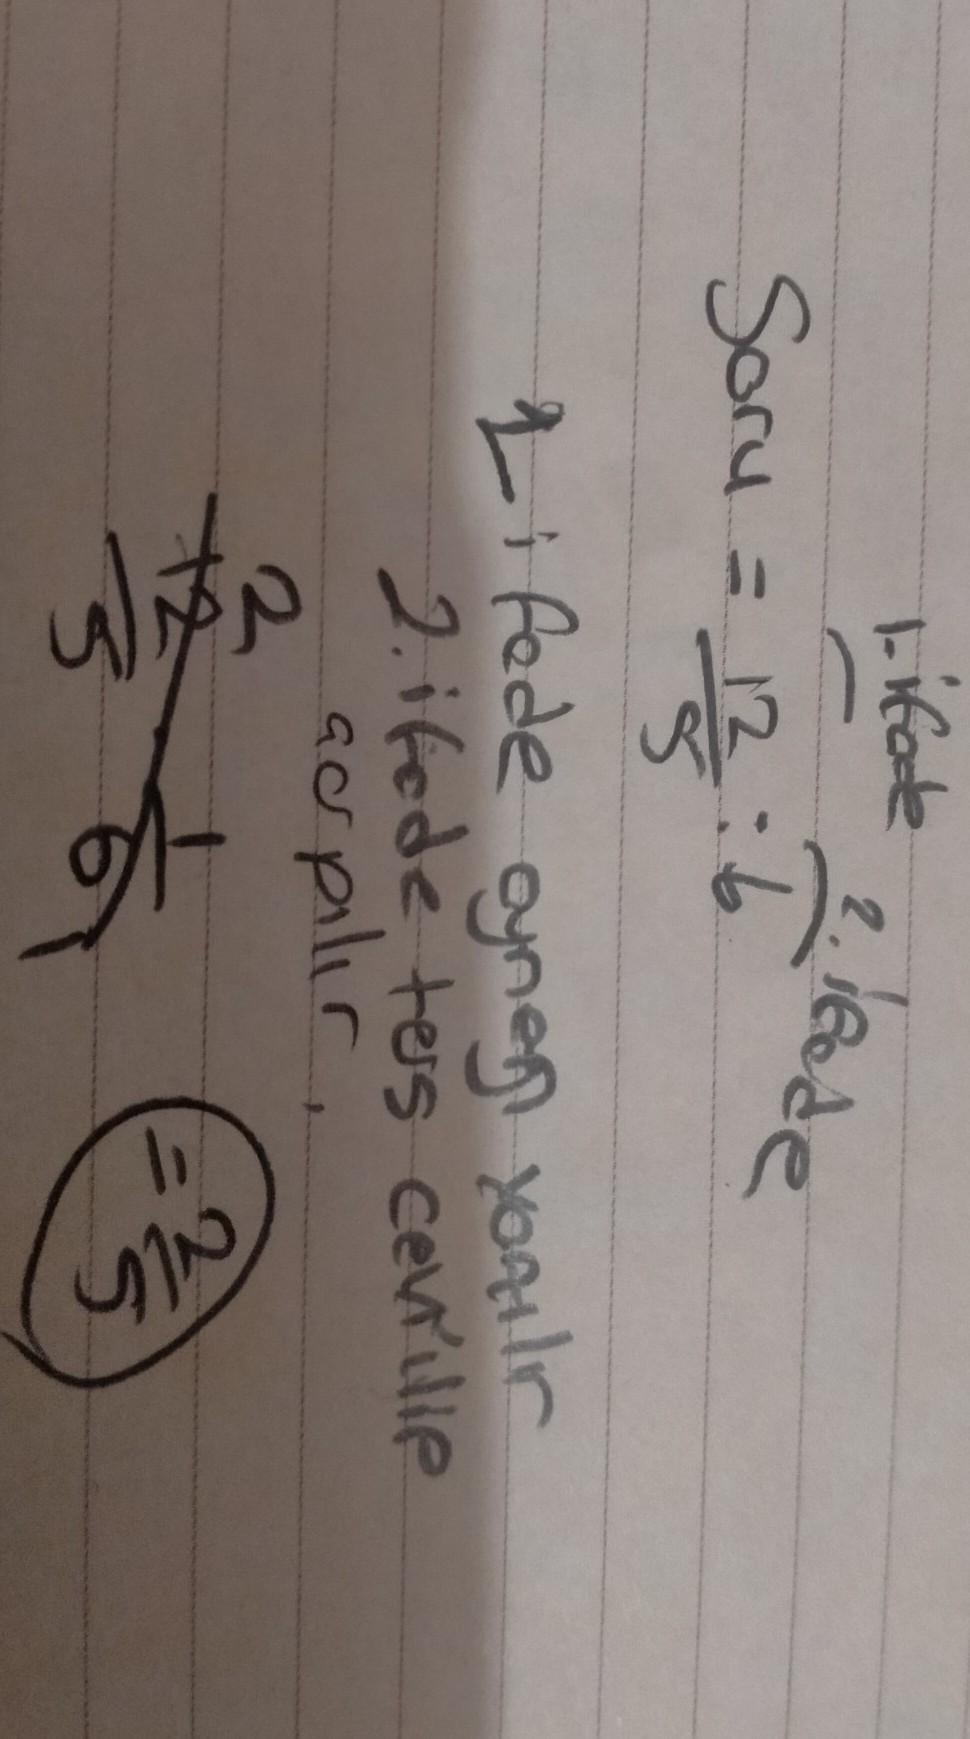 1. ifade 2. ifade
Soru = 12/5 : 6
1 ifade aynen yazılır
2. ifade ters cevrilip
carpılır.
2 1
12/5 6 1 = 2/5